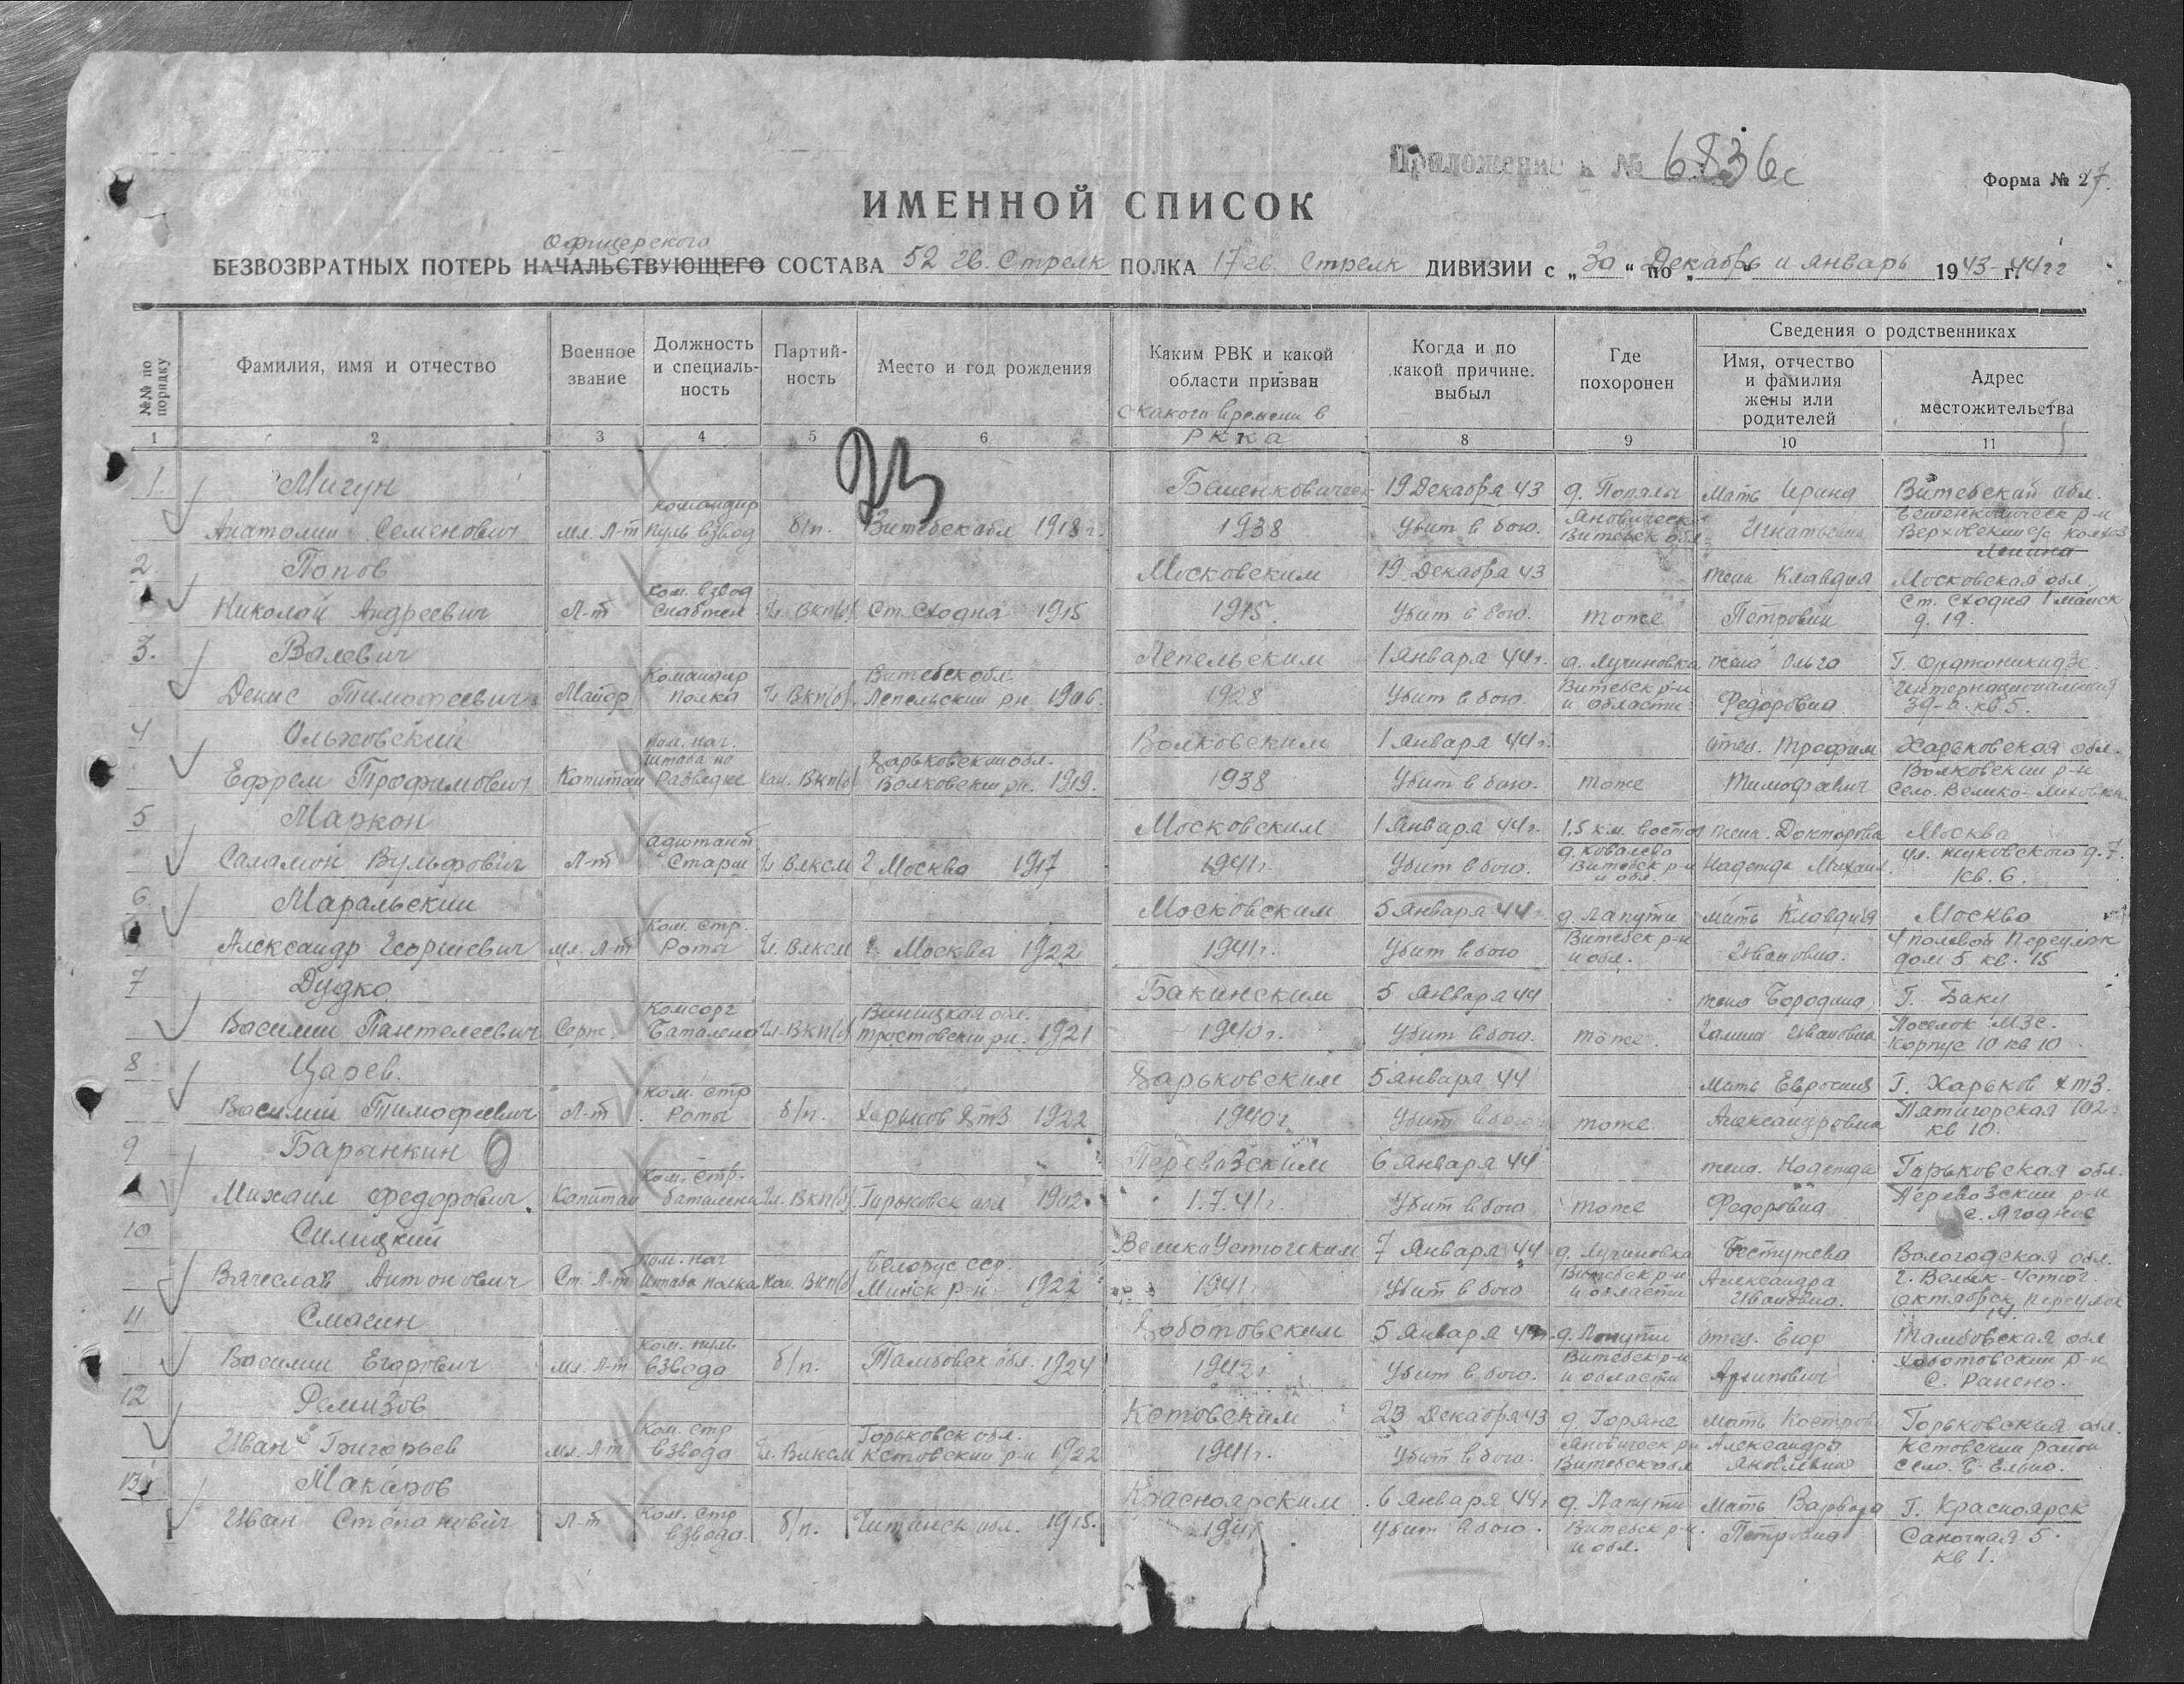 Приложение к № 6836с
Форма № 27.
ИМЕННОЙ СПИСОК
Офицерского
БЕЗВОЗВРАТНЫХ ПОТЕРЬ НАЧАЛЬСТВУЮЩЕГО СОСТАВА 52 гв. Стрелк ПОЛКА 17 гв. Стрелк ДИВИЗИИ с „ за “ по „ Декабрь и январь 1943-44 гг
№№ по порядку
Фамилия, имя и отчество
Военное звание
Должность и специаль-ность
Партий-ность
Место и год рождения
Каким РВК и какой области призван
с какого времени в РККА
Когда и по какой причине. выбыл
Где похоронен
Сведения о родственниках
Имя, отчество и фамилия жены или родителей
Адрес местожительства
1 2 3 4 5 6 8 9 10 11
73
1. Мигун Бешенковическ 19 Декабря 43 д. Попялы Мать Ирина Витебской обл.
командир Яновическ Бешенковическ р-н
Анатолий Семенович мл. Л-т пуль взвод б/п. Витебск обл 1918 г. 1938 Убит в бою. Витебск обл Игнатьевна Верховский с/с колхоз
Ленина
2 Попов Московским 19 Декабря 43 жена Клавдия Московская обл.
ком. взвод Ст. Сходня 1 Майск
Николай Андреевич Л-т снабжен ч. ВКП(б) Ст. Сходня 1915 1915. Убит в бою. тоже Петровна д. 19.
3. Валевич Лепельским 1 Января 44 г. д. Лучиновка жена Ольга Г. Орджоникидзе.
Командир Витебск обл. Витебск р-н Интернациональная
Денис Тимофеевич Майор полка ч ВКП(б) Лепельский рн 1906. 1928 Убит в бою. и области Федоровна 39-а. кв 5.
4 Ольховский Волковским 1 Января 44 г. отец. Трофим Харьковская обл.
пом. нач. штаба по Харьковской обл. Волковский р-н
Ефрем Трофимович Капитан разведке кан. ВКП(б) Волковский рн. 1919. 1938 Убит в бою. тоже Тимофеевич Село. Велико-
5 Маркон Московским 1 Января 44 г. 1,5 км. восточ жена. Докторова Москва
Адютант д. Ковалево ул. Жуковского д. 7.
Саламон Вульфович Л-т Старш ч ВЛКСМ г Москва 1917 1941 г. Убит в бою. Витебск р-н и обл. Надежда Михаил. кв. 6.
6 Маральский Московским 5 Января 44 г. д. Лапути мать Клавдия Москва
Ком. стр. Витебск р-н 4 полевой Переулок
Александр Георгиевич мл. Л-т Роты ч. ВЛКСМ г. Москва 1922 1941 г. Убит в бою и обл. Ивановна. дом 5 кв. 15
7 Дудко Бакинским 5 Января 44 жена Бородина, Г. Баку
Комсорг Виницкая обл. Поселок МЗС.
Василий Пантелеевич Серж. Баталиона ч. ВКП(б) Тростовский рн. 1921 1940 г. Убит в бою. тоже. Галина Ивановна Корпус 10 кв 10.
8 Царев. Харьковским 5 января 44 Мать Евросиния Г. Харьков ХТЗ.
ком. стр Пятигорская 102.
Василий Тимофеевич Л-т Роты б/п. Харьков ХТЗ 1922 1940 г Убит в бою. тоже Александровна кв 10.
9 Барынкин Перевозским 6 Января 44 жена. Надежда Горьковская обл.
ком. стр. Перевозский р-н
Михаил Федорович. Капитан баталиона Чл. ВКП(б) Горьковск обл 1902. 1.7.41 г. Убит в бою тоже Федоровна с. Ягодное
10 Силицкий Велико Устюгским 7 Января 44 д. Лучиновка Бестужева Вологодская обл.
пом. нач Белорус ССР. Витебск р-н Александра г. Велик-Устюг.
Вячеслав Антонович Ст. Л-т Штаба полка кан. ВКП(б) Минск р-н 1922 1941 Убит в бою и области Ивановна. октябрск переулок
14.
11 Смагин Хоботовским 5 Января 44 г. д. Лапути отец. Егор Тамбовская обл
Ком. пуль Витебск р-н Хоботовский р-н
Василий Егорович мл. Л-т взвода б/п. Тамбовск обл. 1924 1942 г Убит в бою. и области Архипович с. Ранено.
12 Ремизов Кстовским 23 Декабря 43 д. Горяне Мать Кострова Горьковская обл.
Ком. стр Горьковск обл. Яновическ рн Александра Кстовский район
Иван Григорьев мл. Л-т взвода ч. ВЛКСМ Кстовский р-н 1922 1941 г. Убит в бою. Витебск обл Яковлевна Село. Б-Ельно.
13 Макаров Красноярским 6 Января 44 г д. Лапути Мать Варвара Г. Красноярск
Ком. стр Витебск р-н.
Иван Степанович Л-т взвода. б/п. Читинск обл. 1915. 1941 Убит в бою. и обл. Петровна 5.
кв 1.